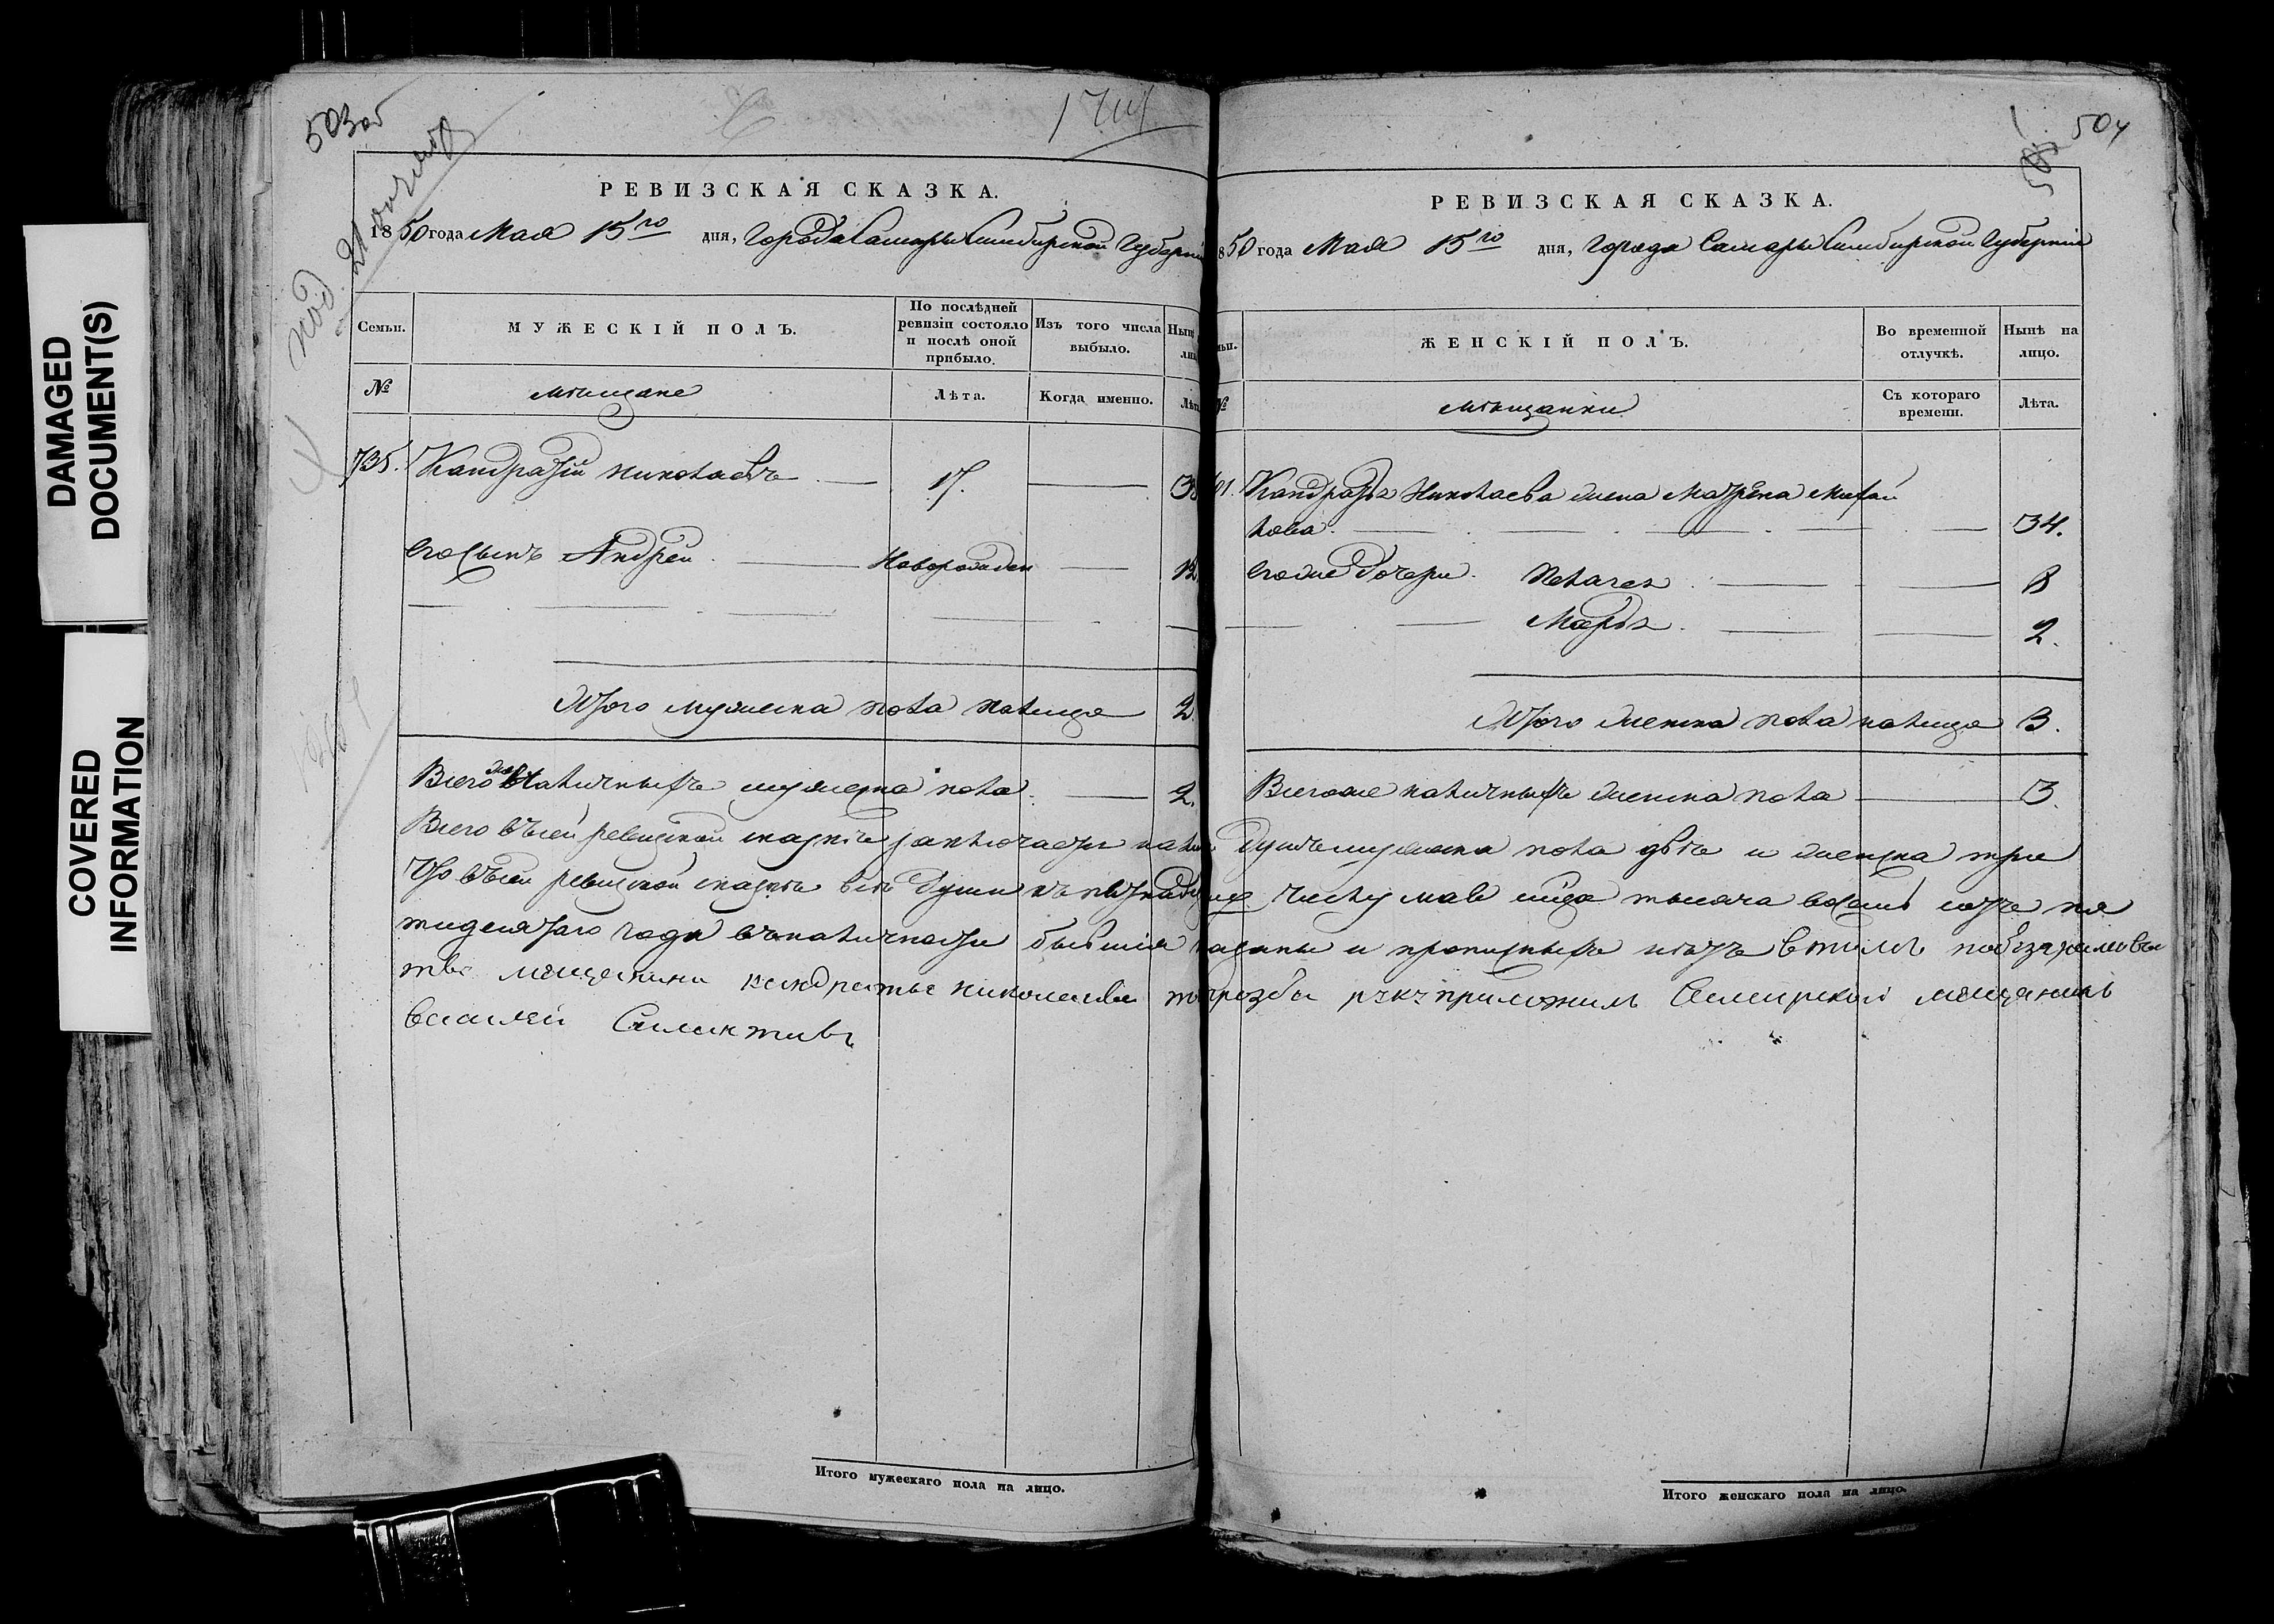 DAMAGED
DOCUMENT(S)
COVERED
INFORMATION
503об
под. 21 августа
РЕВИЗСКАЯ СКАЗКА.
1850 года Мая 15го дня, Города Самары Симбирской Губерніи
Семьи.
МУЖЕСКІЙ ПОЛЪ.
По послѣдней ревизіи состояло и послѣ оной прибыло.
Изъ того числа выбыло.
Нын
№
мѣщане
Лѣта.
Когда именно.
Лѣта
735. Кандратій Николаевъ — 17. —
Его Сынъ Андрей — Новорожден — 12
Итого мужеска пола налицо 2.
Всего же наличныхъ мужеска пола — 2.
504
РЕВИЗСКАЯ СКАЗКА.
850 года Мая 15го дня, Города Самары Симбирской Губерніи
ьи.
ЖЕНСКІЙ ПОЛЪ.
Во временной отлучкѣ.
Нынѣ на лицо.
№
мѣщанки
Съ котораго времени.
Лѣта.
Кандратья Николаева жена Матрена Михай
лова — 34.
Его же дочери Пелагея — 8
Марья — 2.
Итого женска пола налицо 3.
Всего же наличныхъ женска пола — 3.
Всего въ сей ревизской сказкѣ заключается налиц душъ мужеска пола двѣ и женска три
Что въ сей ревизской сказкѣ всѣ души къ пятнадц числу мая мѣсяца тысяча восемь сотъ пя
тидесятаго года въ наличности бывшія показаны и прописныхъ нѣтъ в томъ
мещенина кандратья николаева прозбы рукуприложилъ Самарской мещенинъ
василей
Итого мужескаго пола на лицо.
Итого женскаго пола на лицо.